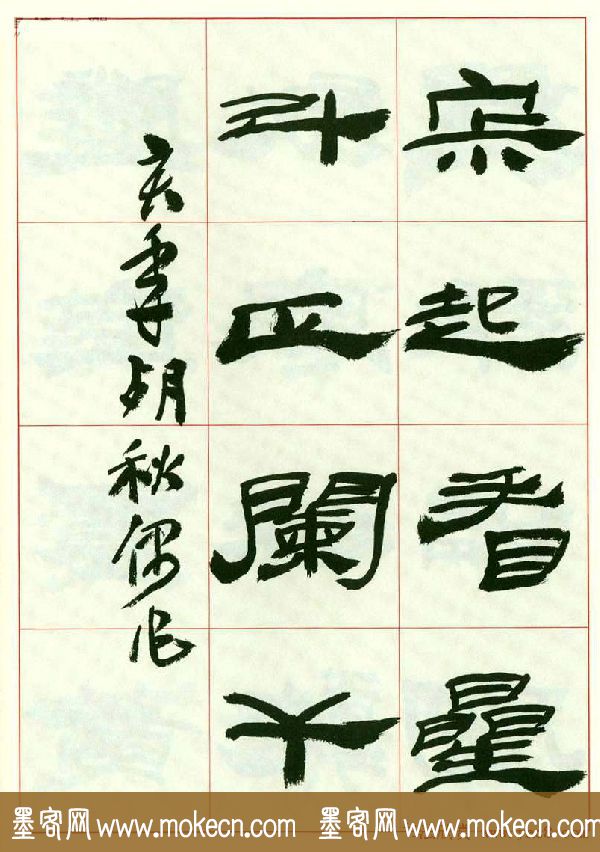 起看星
斗正闌干
胡秋偶作
墨客网 www.mokecn.com 墨客网 www.mokecn.com